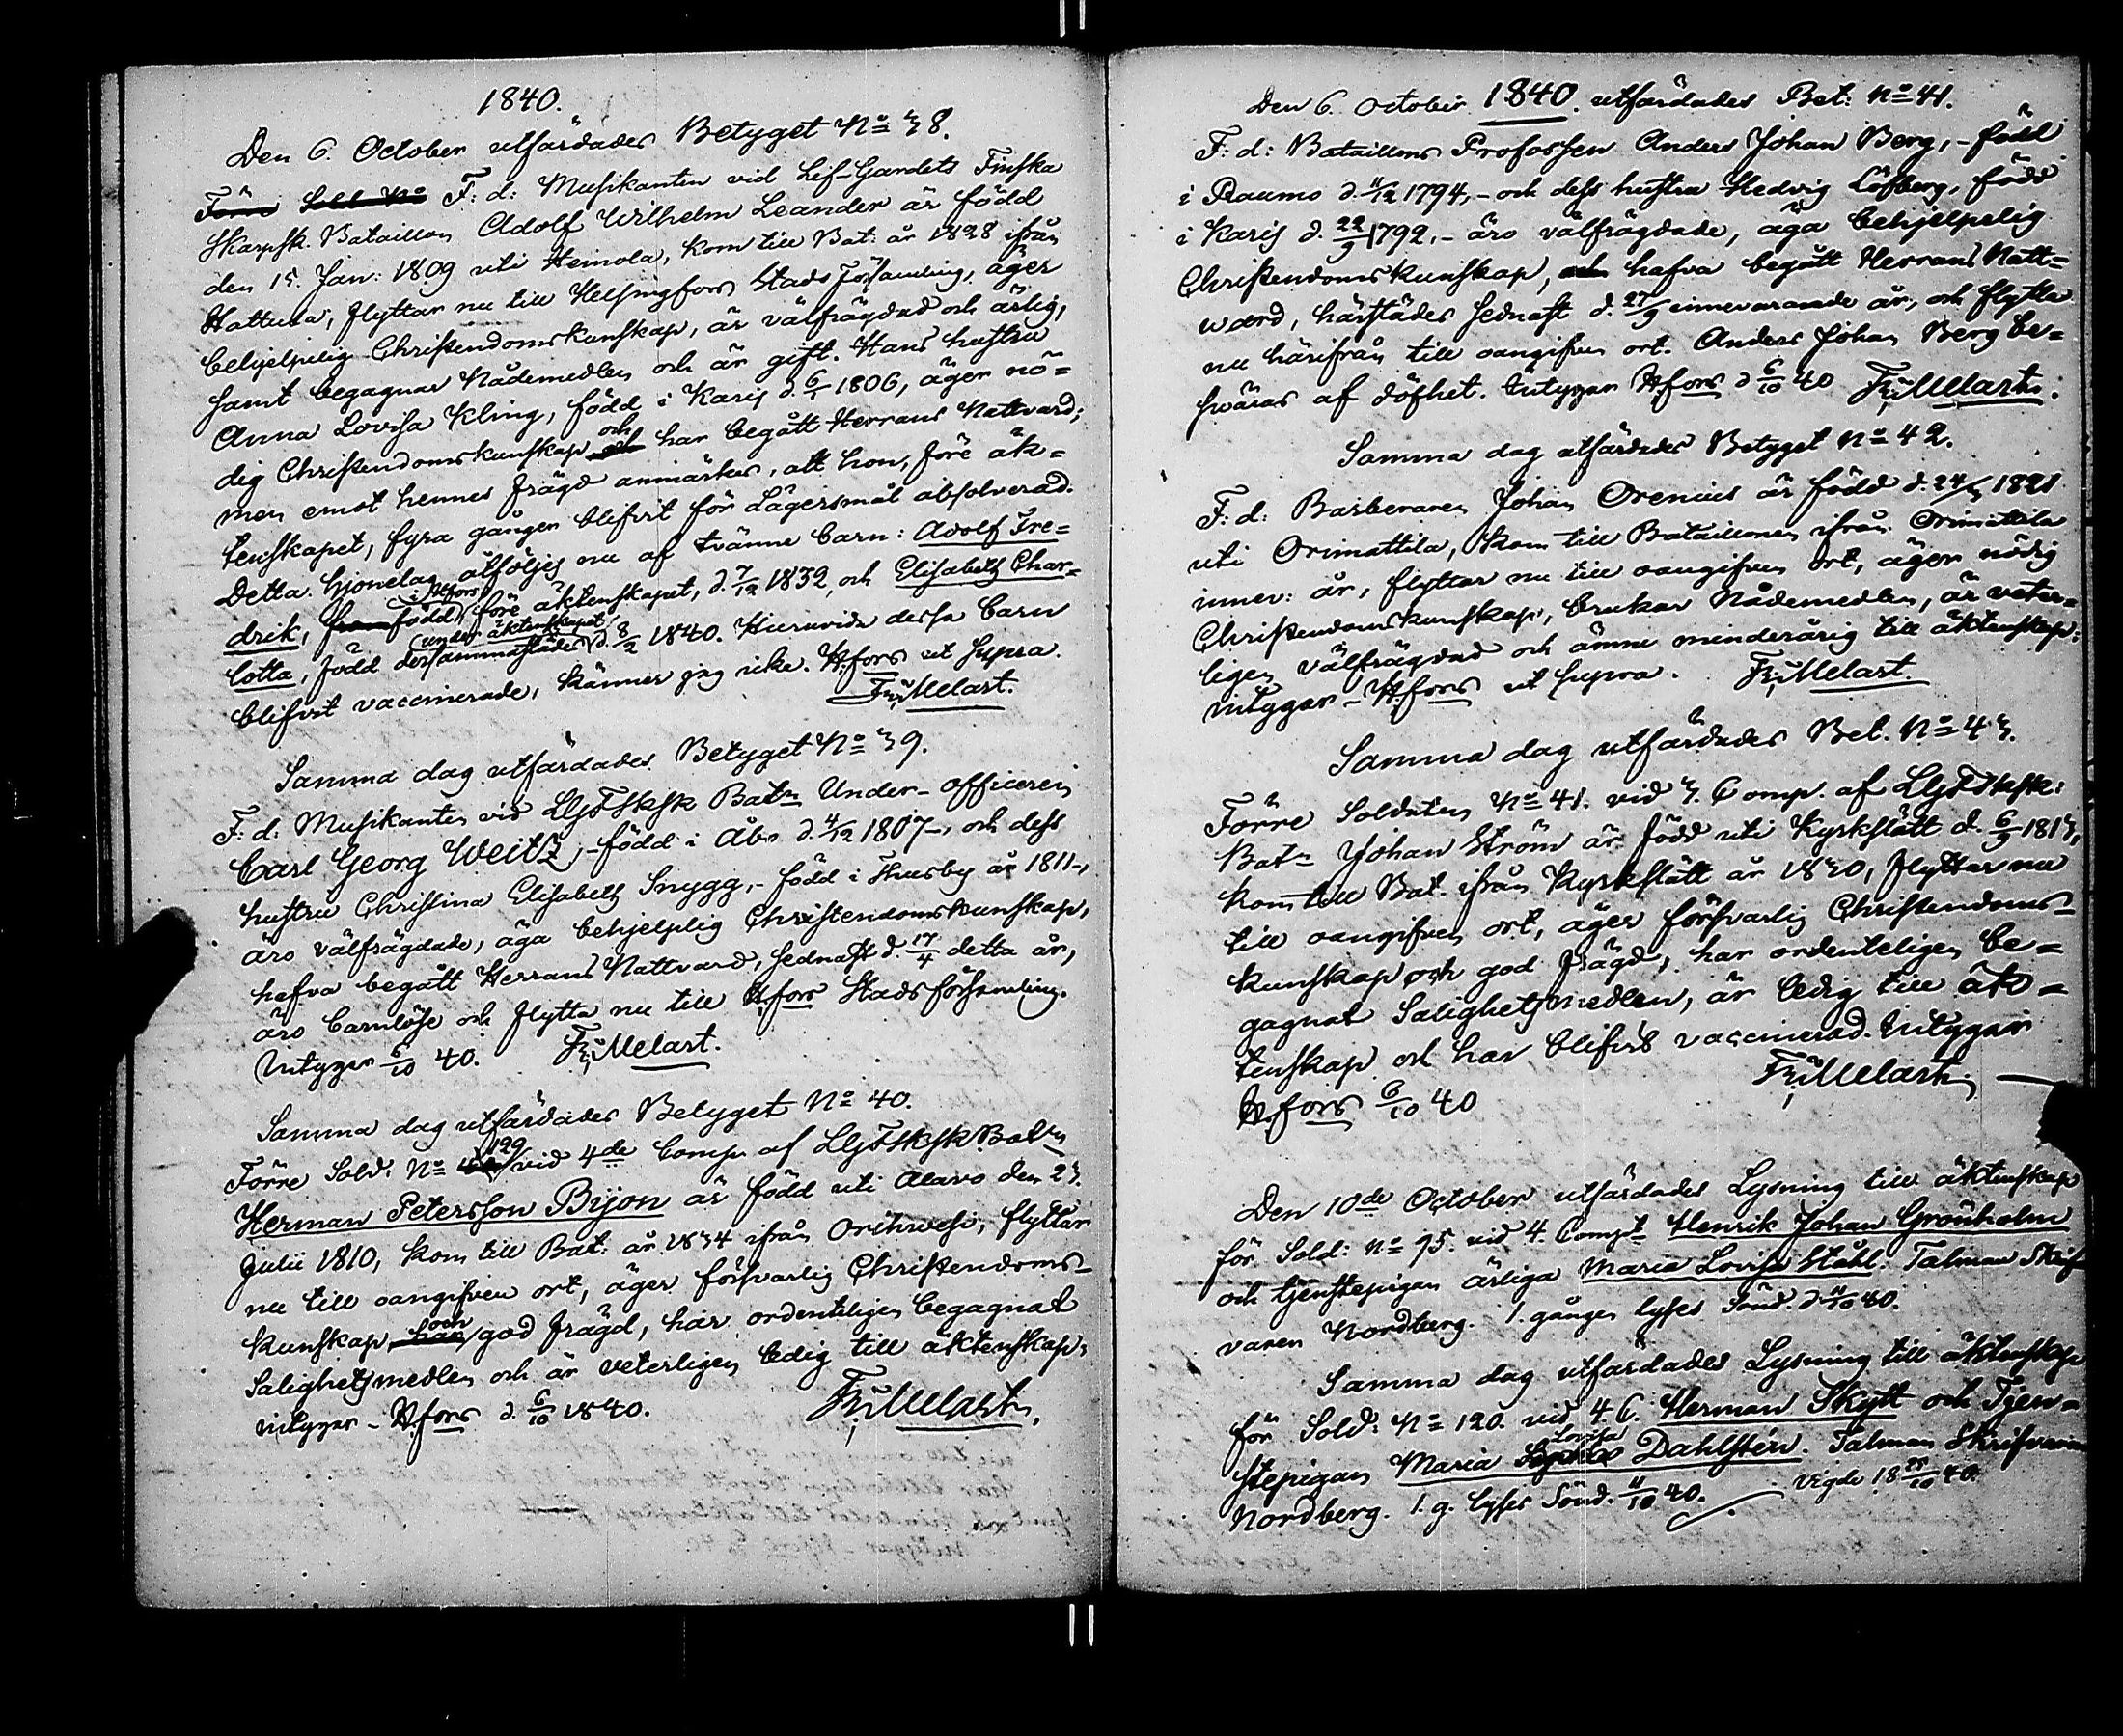 1840.
Den 6. October utfärdades Betyget No 38.
Förre Sold. No F: d: Musikanten vid Lif-Gardets Finska
Skarpsk. Bataillon Adolf Wilhelm Leander är född
den 15. Jan: 1809 uti Heinola, kom till Bat: år 1828 ifrån
Hattula, flyttar nu till Helsingfors Stads Församling, äger
behjelpelig Christendomskunskap, är välfrägdad och ärlig,
samt begagnar Nådemedlen och är gift. Hans hustru
Anna Lovisa Kling, född i Karis d. 6/1 1806, äger nö=
dig Christendomskunskap och har begått Herrans Nattvard;
men emot hennes frägd anmärkes, att hon, före äk=
tenskapet, fyra gånger blifvit för Lägersmål absolverad.
Detta hjonelag åtföljes nu af tvänne barn: Adolf Fre=
drik, född i Hfors före äktenskapet, d. 7/12 1832, och Elisabeth Char=
lotta, född dersammastädes under äktenskapet d. 8/2 1840. Huruvida dessa barn
blifvit vaccinerade, känner jag icke. H:fors ut supra.
Fr: Melart.
Samma dag utfärdades Betyget No 39.
F: d: Musikanten vid LGFSksk Batn Under-officeren
Carl Georg Weitz, född i Åbo d. 4/12 1807, och dess
hustru Christina Elisabeth Snygg, - född i Thusby år 1811,
äro välfrägdade, äga behjelplig Christendomskunskap,
hafva begått Herrans Nattvard, sednast d. 17/4 detta år,
äro barnlöse och flytta nu till H:fors Stads församling.
Intygar 6/10 40. Fr: Melart.
Samma dag utfärdades Betyget No 40.
Förre Sold: No 129 vid 4de Comp. af LGFSksk Batn
Herman Petersson Bijon är född uti Alavo den 23.
Julii 1810, kom till Bat: år 1834 ifrån Orihvesi, flyttar
nu till oangifven ort, äger försvarlig Christendoms-
kunskap, och god frägd, har ordenteligen begagnat
Salighetsmedlen och är veterligen ledig till äktenskap,
intygar - H:fors d. 6/10 1840. Fr: Melart.
Den 6. October 1840. utfärdades Bet: No 41.
F: d: Bataillons Profossen Anders Johan Berg, - född
i Raumo d. 4/12 1794, - och dess hustru Hedvig Löfberg, född
i Karis d. 22/9 1792, - äro välfrägdade, äga behjelpelig
Christendomskunskap, hafva begått Herrans Natt=
ward, härstädes sednast d. 27/9 innevarande år, och flytta
nu härifrån till oangifven ort. Anders Johan Berg be=
sväras af döfhet. Intygar H:fors d 6/10 40 Fr: Melart.
Samma dag utfärdades Betyget No 42.
F: d: Barberaren Johan Orenius är född d. 24/5 1821
uti Orimattila, kom till Bataillonen ifrån Orimattila
innev: år, flyttar nu till oangifven ort, äger nödig
Christendomskunskap, brukar Nådemedlen, är veter=
ligen välfrägdad och ännu minderårig till äktenskap:
intygar - H:fors ut supra. Fr: Melart.
Samma dag utfärdades Bet. No 43.
Förre Soldaten No 41. vid 3. Comp. af LGFSksk:
Batn Johan Ström är född uti Kyrkslätt d. 6/5 1813,
kom till Bat. ifrån Kyrkslätt år 1830, flyttar nu
till oangifven ort, äger försvarlig Christendoms-
kunskap och god frägd, har ordenteligen be=
gagnat Salighetsmedlen, är ledig till äk=
tenskap och har blifvit vaccinerad. Intygar
H:fors 6/10 40 Fr: Melart
Den 10de October utfärdades Lysning till äktenskap
för Sold: No 95. vid 4. Comp: Henrik Johan Grönholm
och tjenstepigan ärliga Maria Lovisa Ståhl. Talman Skrif
varen Nordberg. 1. gången lyses Sönd. d 11/10 40.
Samma dag utfärdades Lysning till äktenskap
för Sold: No 120. vid 4. C. Herman Skytt och Tjen=
stepigan Maria Lovisa Dahlstén. Talman Skrifvaren
Nordberg. 1. g. lyses Sönd. 11/10 40. Vigde 18 25/10 40.